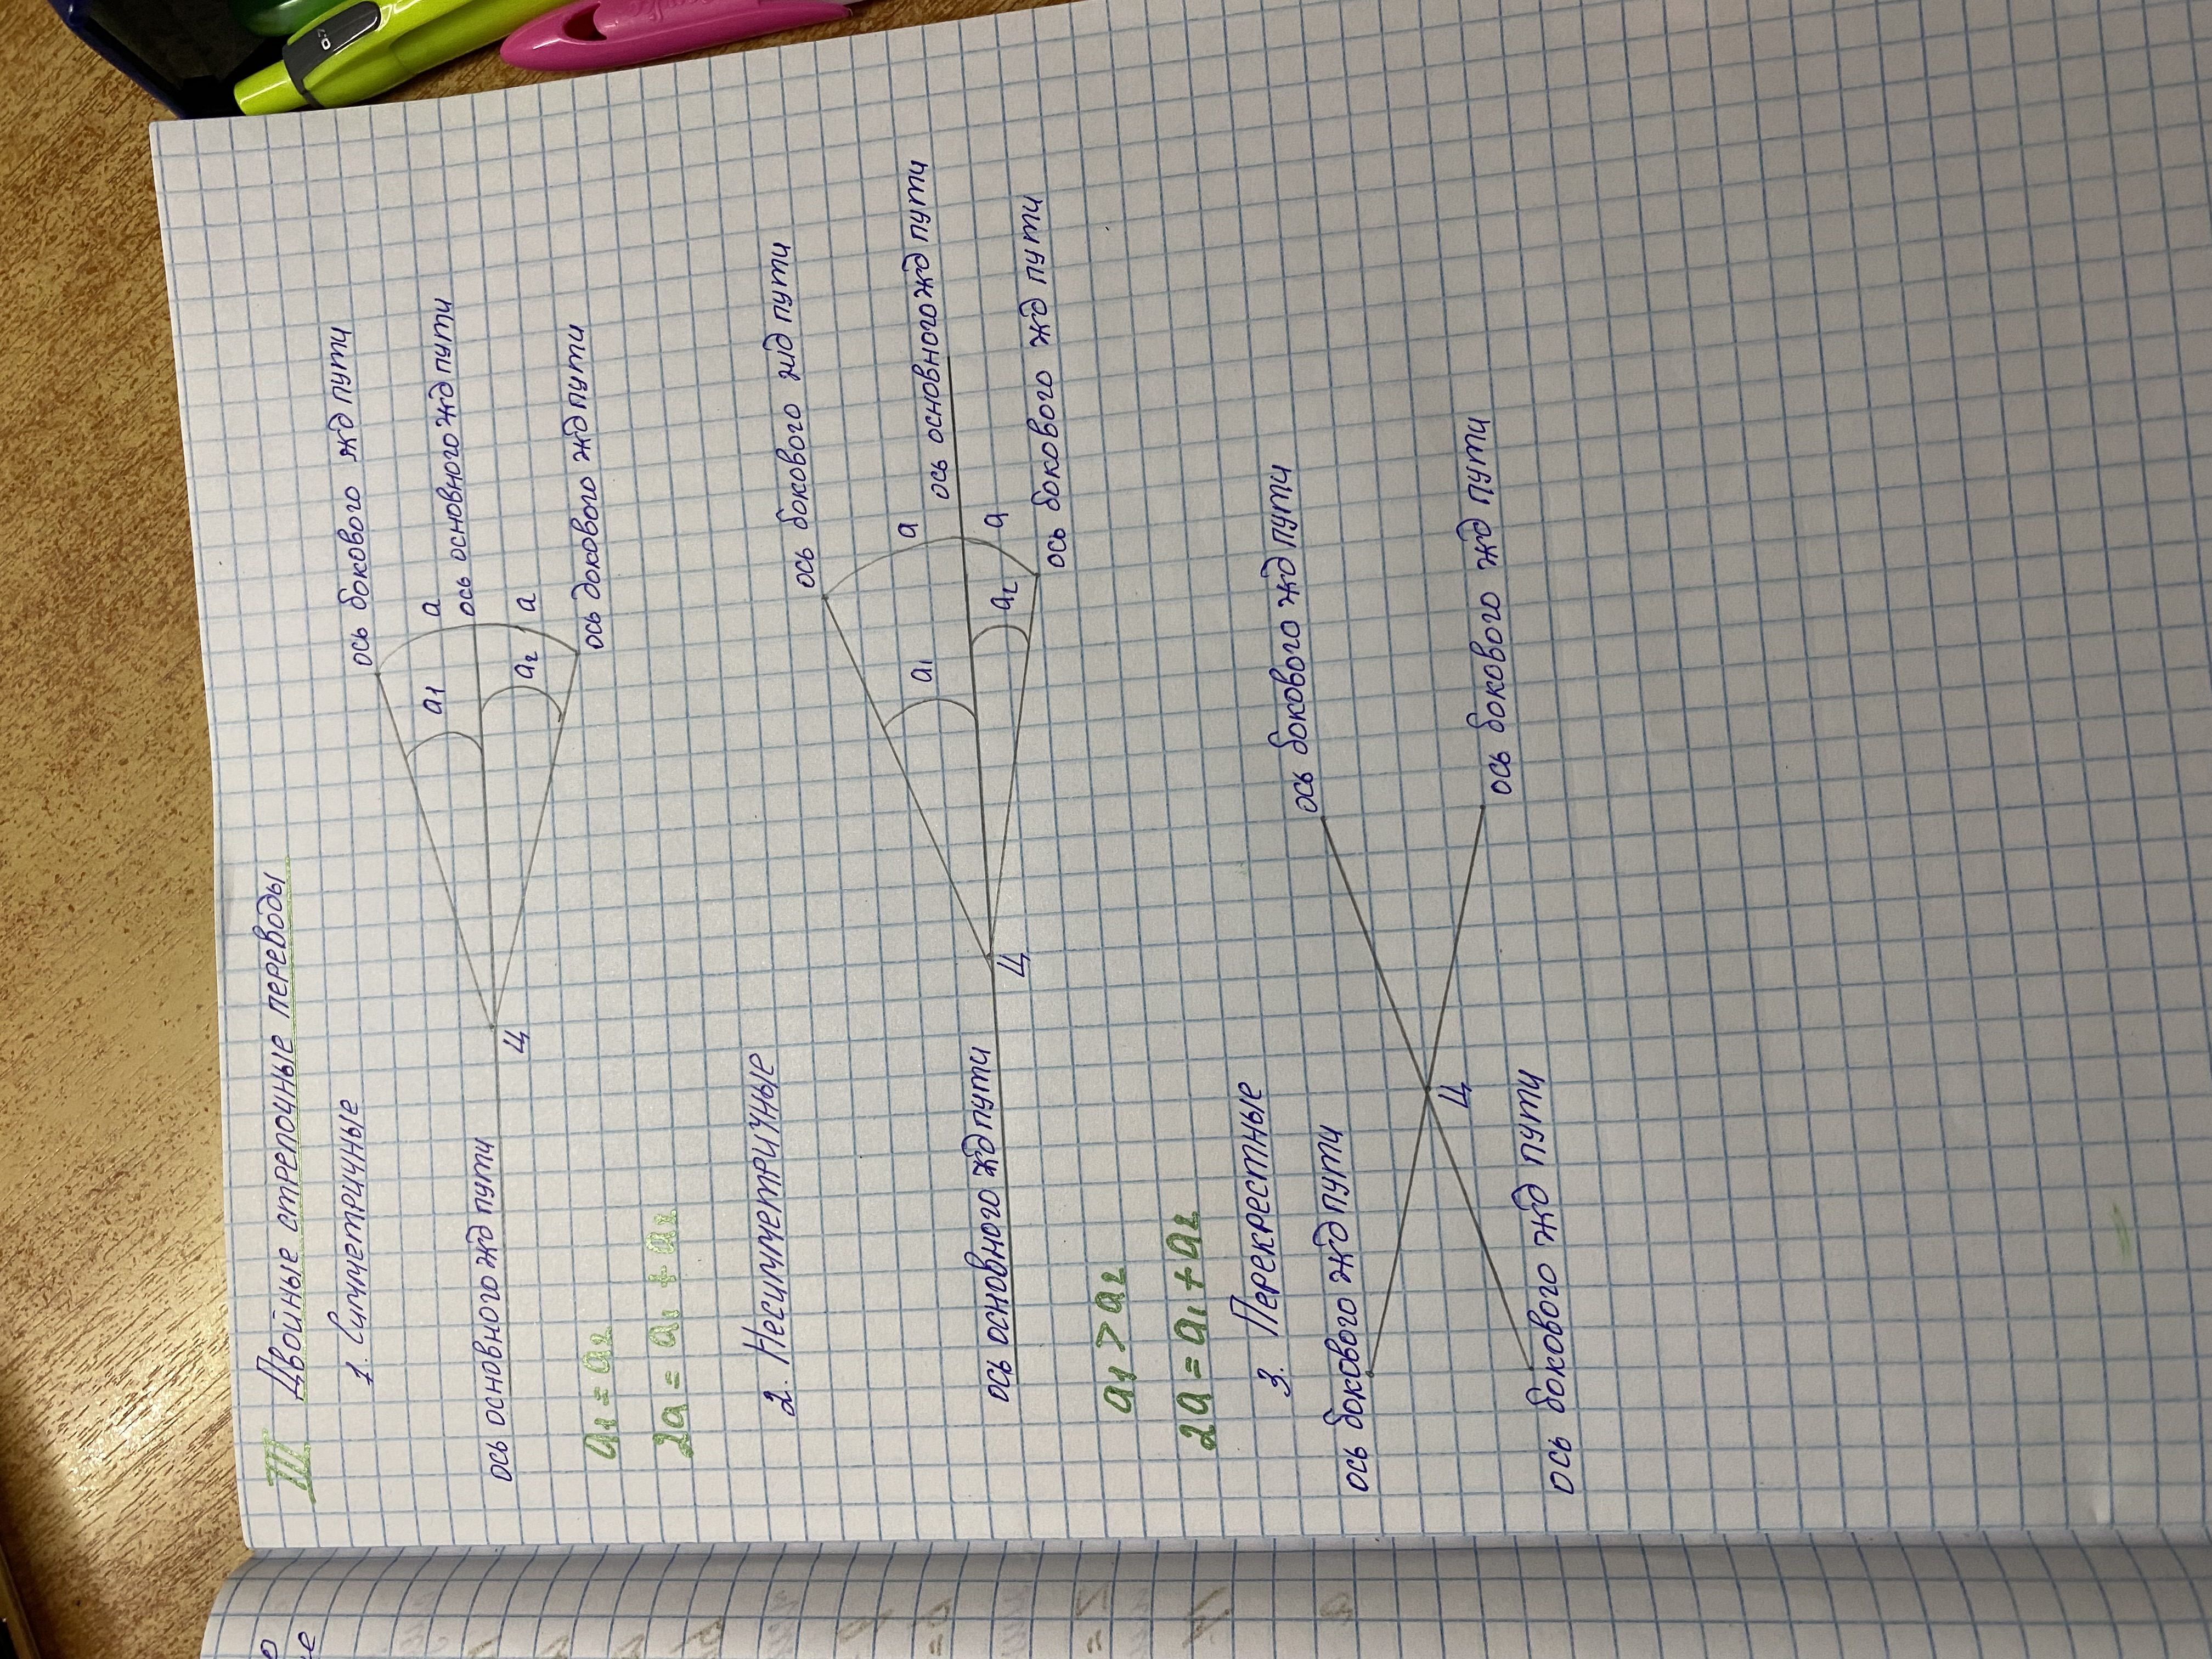 III Двойные стрелочные переводы
1. Симметричные
ось бокового жд пути
a1 a
ось основного жд пути
ось основного жд пути
Ц a2 a
ось докового жд пути
a1 = a2
2a = a1 + a2
2. Несимметричные
ось бокового жд пути
a1 a
ось основного жд пути
ось основного жд пути
Ц a2 a
ось бокового жд пути
a1 > a2
2a = a1 + a2
3. Перекрестные
ось бокового жд пути
ось бокового жд пути
Ц
ось бокового жд пути
ось бокового жд пути
0.7